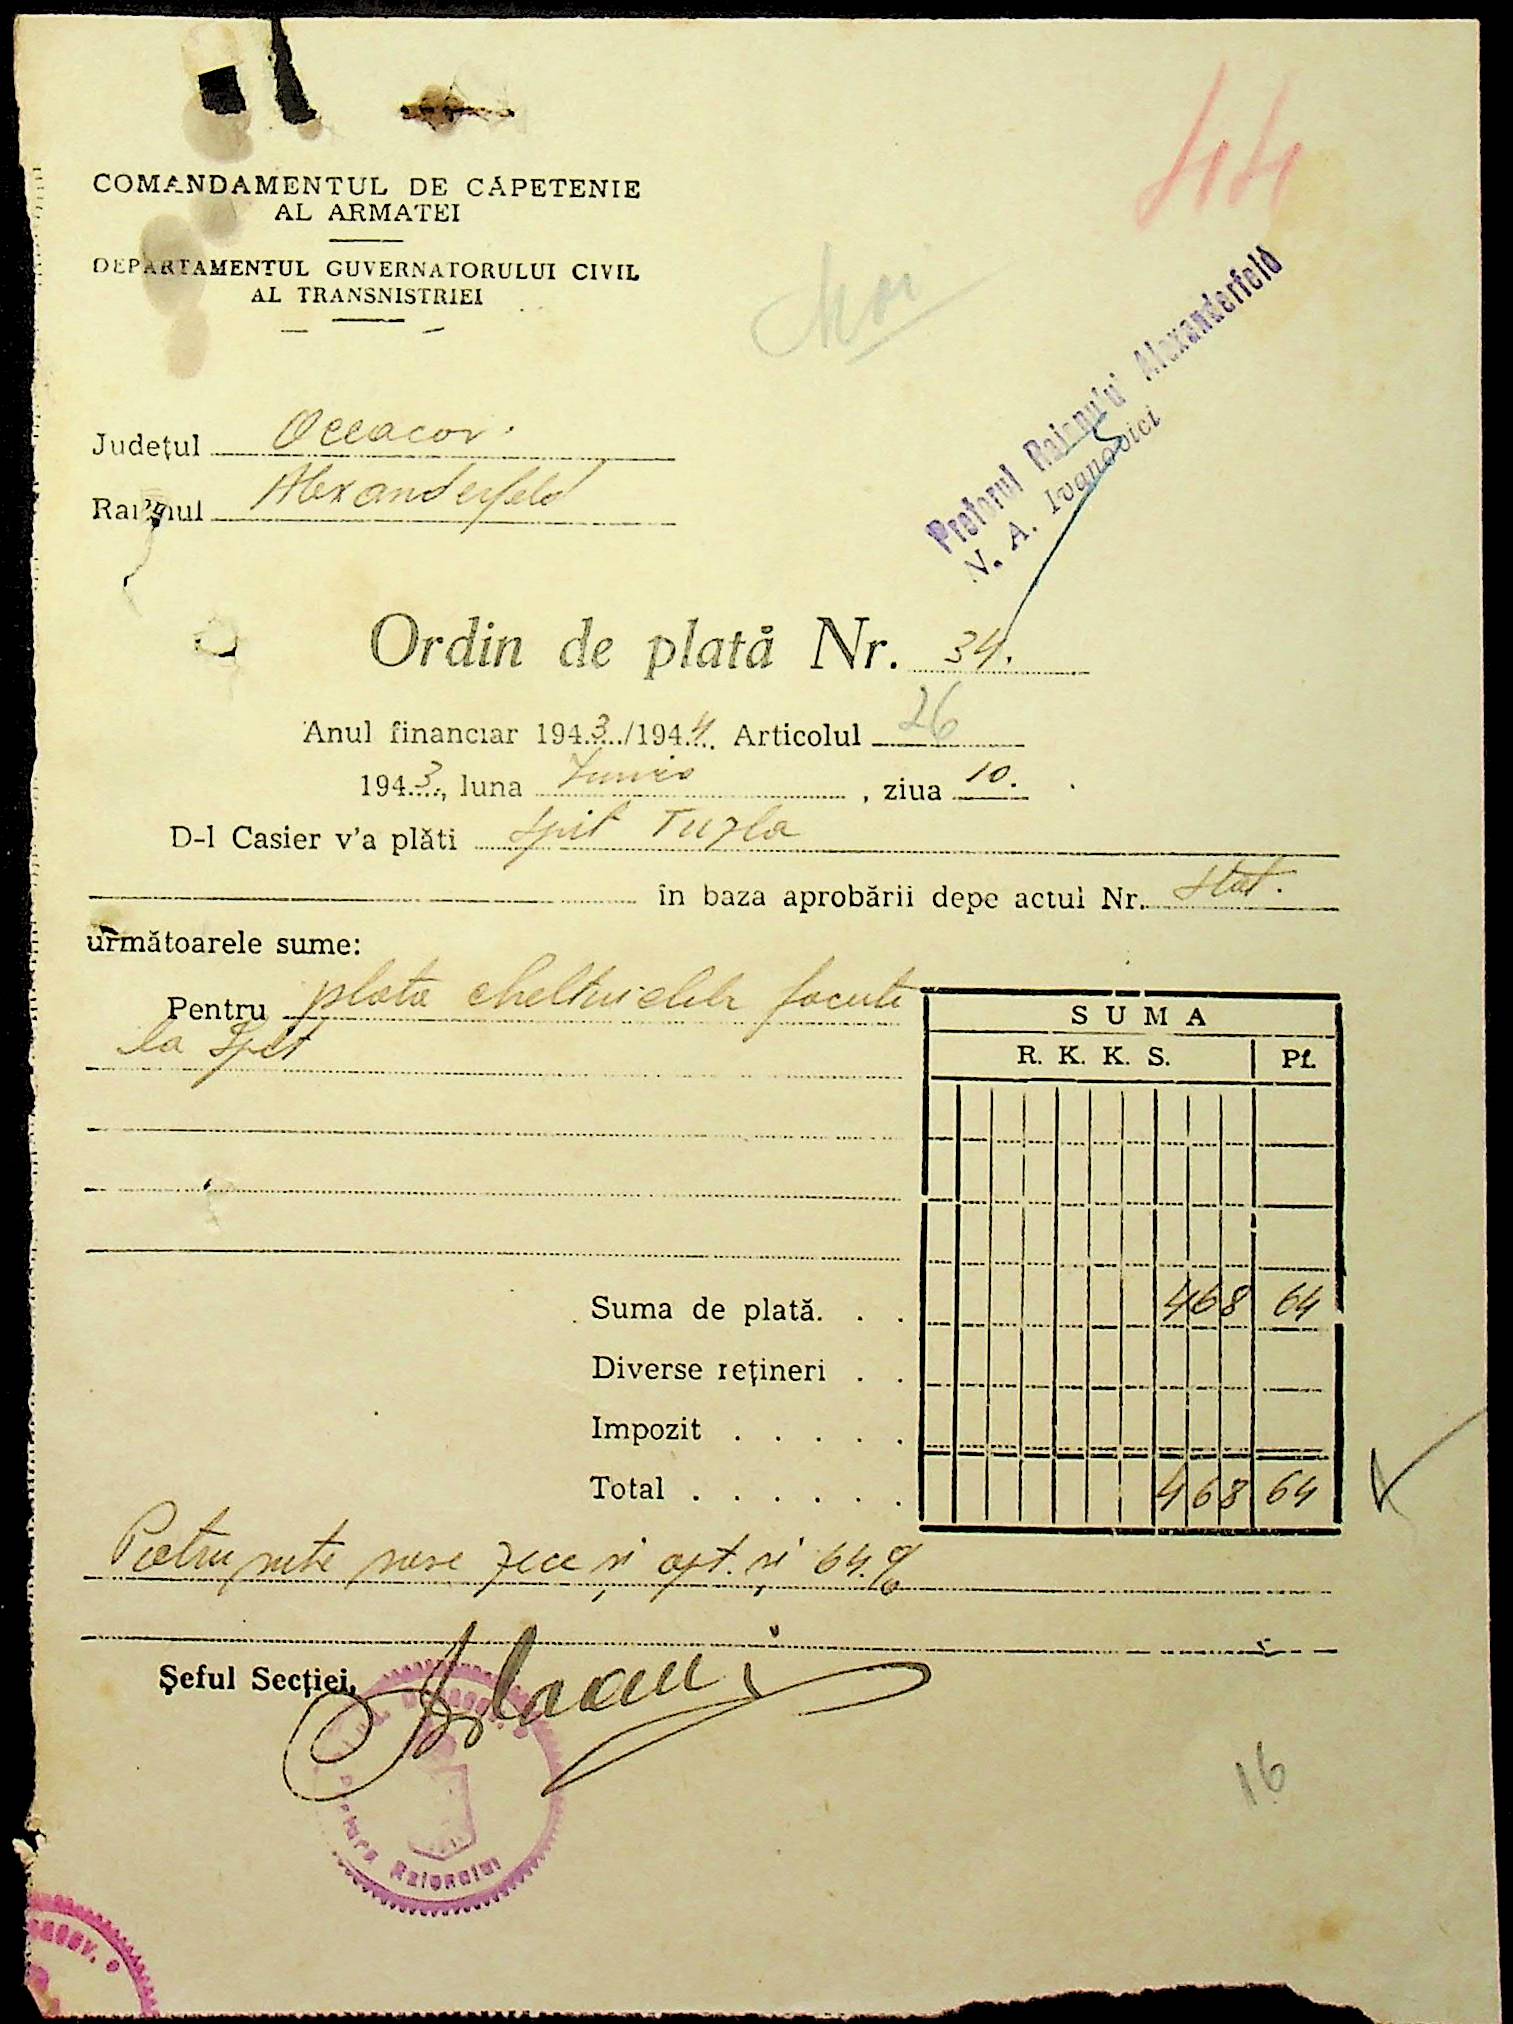 44
COMANDAMENTUL DE CĂPETENIE
AL ARMATEI
DEPARTAMENTUL GUVERNATORULUI CIVIL
AL TRANSNISTRIEI
Pretorul Raionului Alexanderfeld
N. A. Ivanovici
Județul Oceacov.
Raionul Alexanderfeld
Ordin de plată Nr. 34.
Anul financiar 1943/1944. Articolul 26
1943, luna Junio, ziua 10.
D-l Casier v'a plăti Spit Tuzla
în baza aprobării depe actul Nr. Stat.
următoarele sume:
Pentru plata cheltuielilor facute
la Spit
SUMA
R. K. K. S. Pf.
Suma de plată. . . 468 64
Diverse rețineri . .
Impozit . . . . .
Total . . . . . . 468 64
Patru sute șase zece și opt. și 64.%
Șeful Secției,
Jud. Oceacov.
Pretura Raionului
16